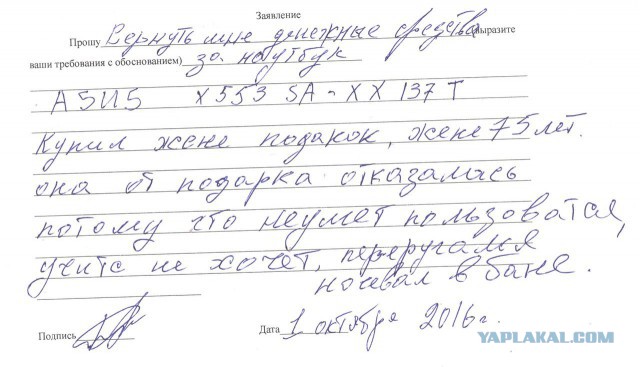 Заявление
Прошу Вернуть мне денежные средства (выразите
ваши требования с обоснованием) за ноутбук
ASUS X553 SA-XX 137 T
Купил жене подакок, жене 75 лет.
она от подарка отказалась
потому что неумет пользоватся,
учитс не хочет, переругался
ночевал в бане.
Подпись Дата 1 октября 2016г.
YAPLAKAL.COM